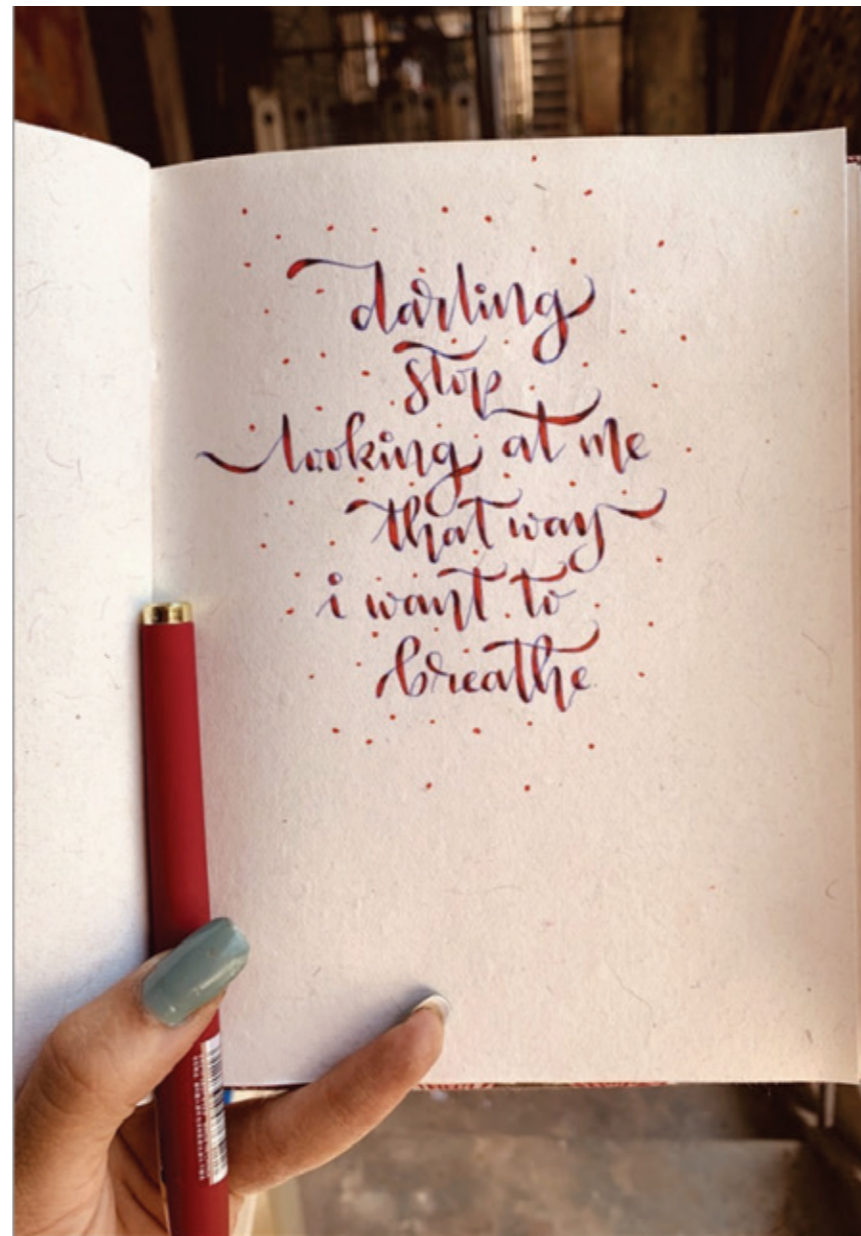 darling
stop
looking at me
that way
i want to
breathe